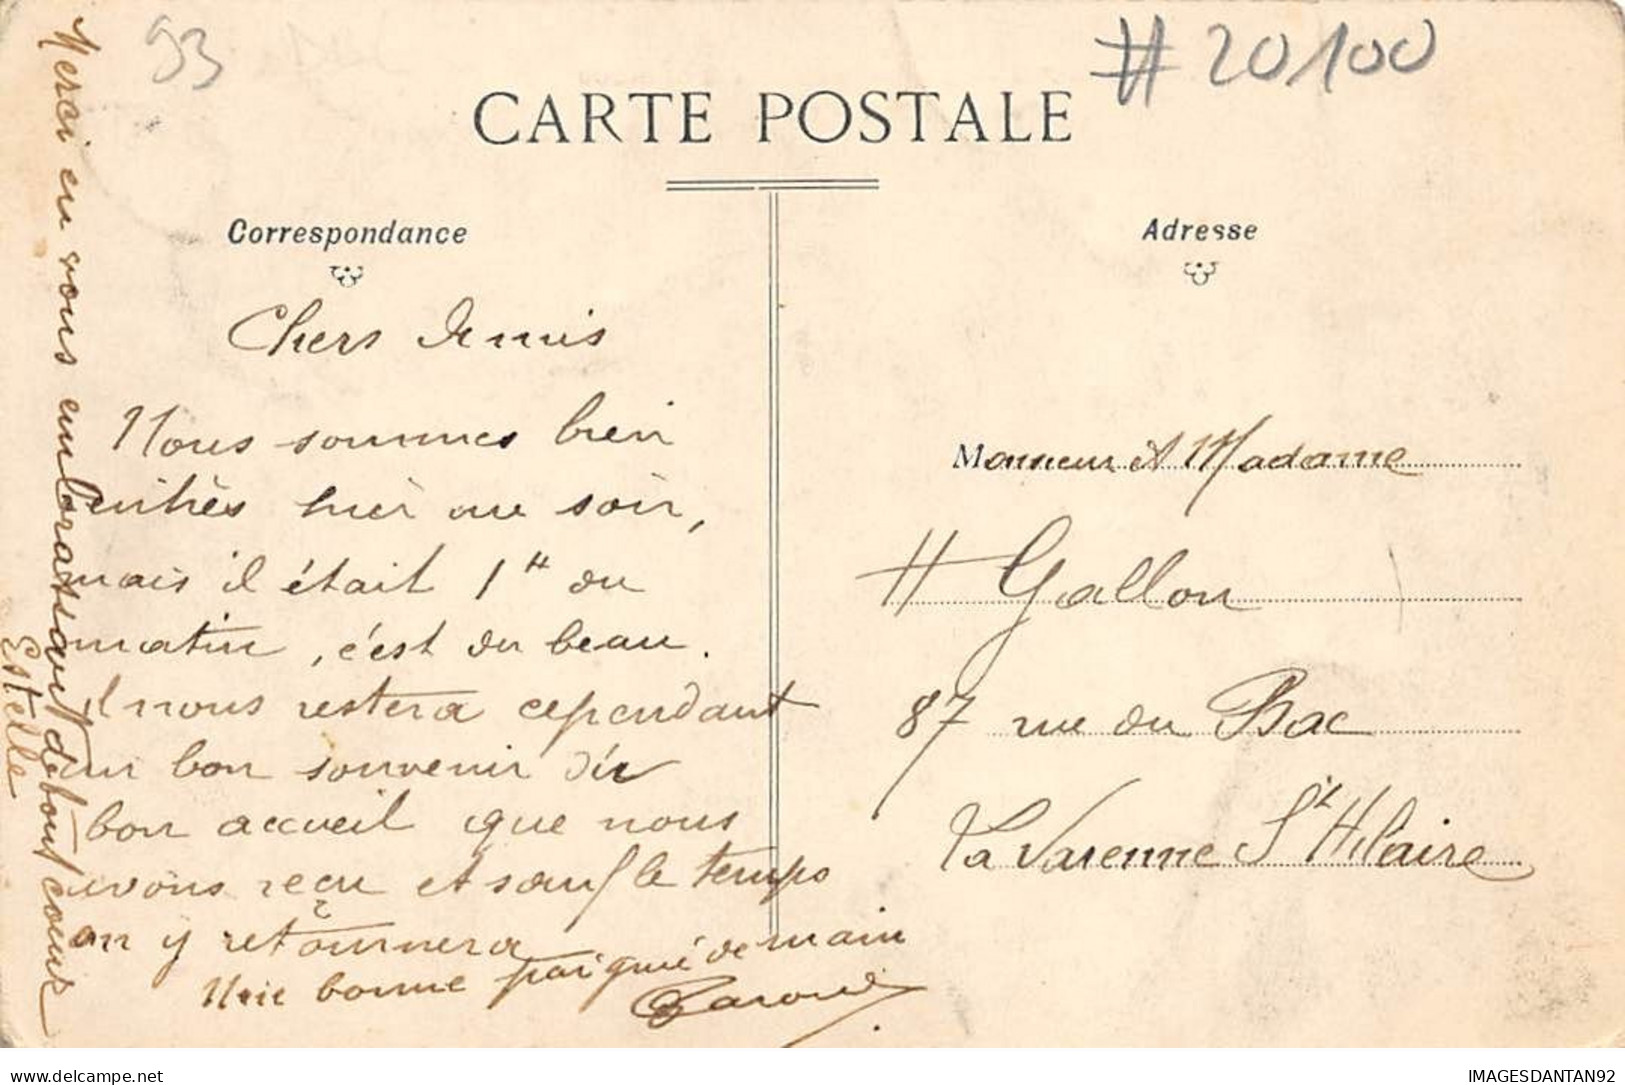 93
# 20100
CARTE POSTALE
Correspondance
Adresse
Chers Amis
Nous sommes bien
rentrés hier au soir,
mais il était 1H du
matin, c'est du beau.
il nous restera cependant
un bon souvenir du
bon accueil que nous
avons reçu et sauf le temps
on y retournera
Une bonne poignée de main
Merci en vous embrassant de bon cœur
Estelle
Monsieur et Madame
# Gallon
87 rue du Bac
La Varenne St Hilaire
IMAGESDANTAN92